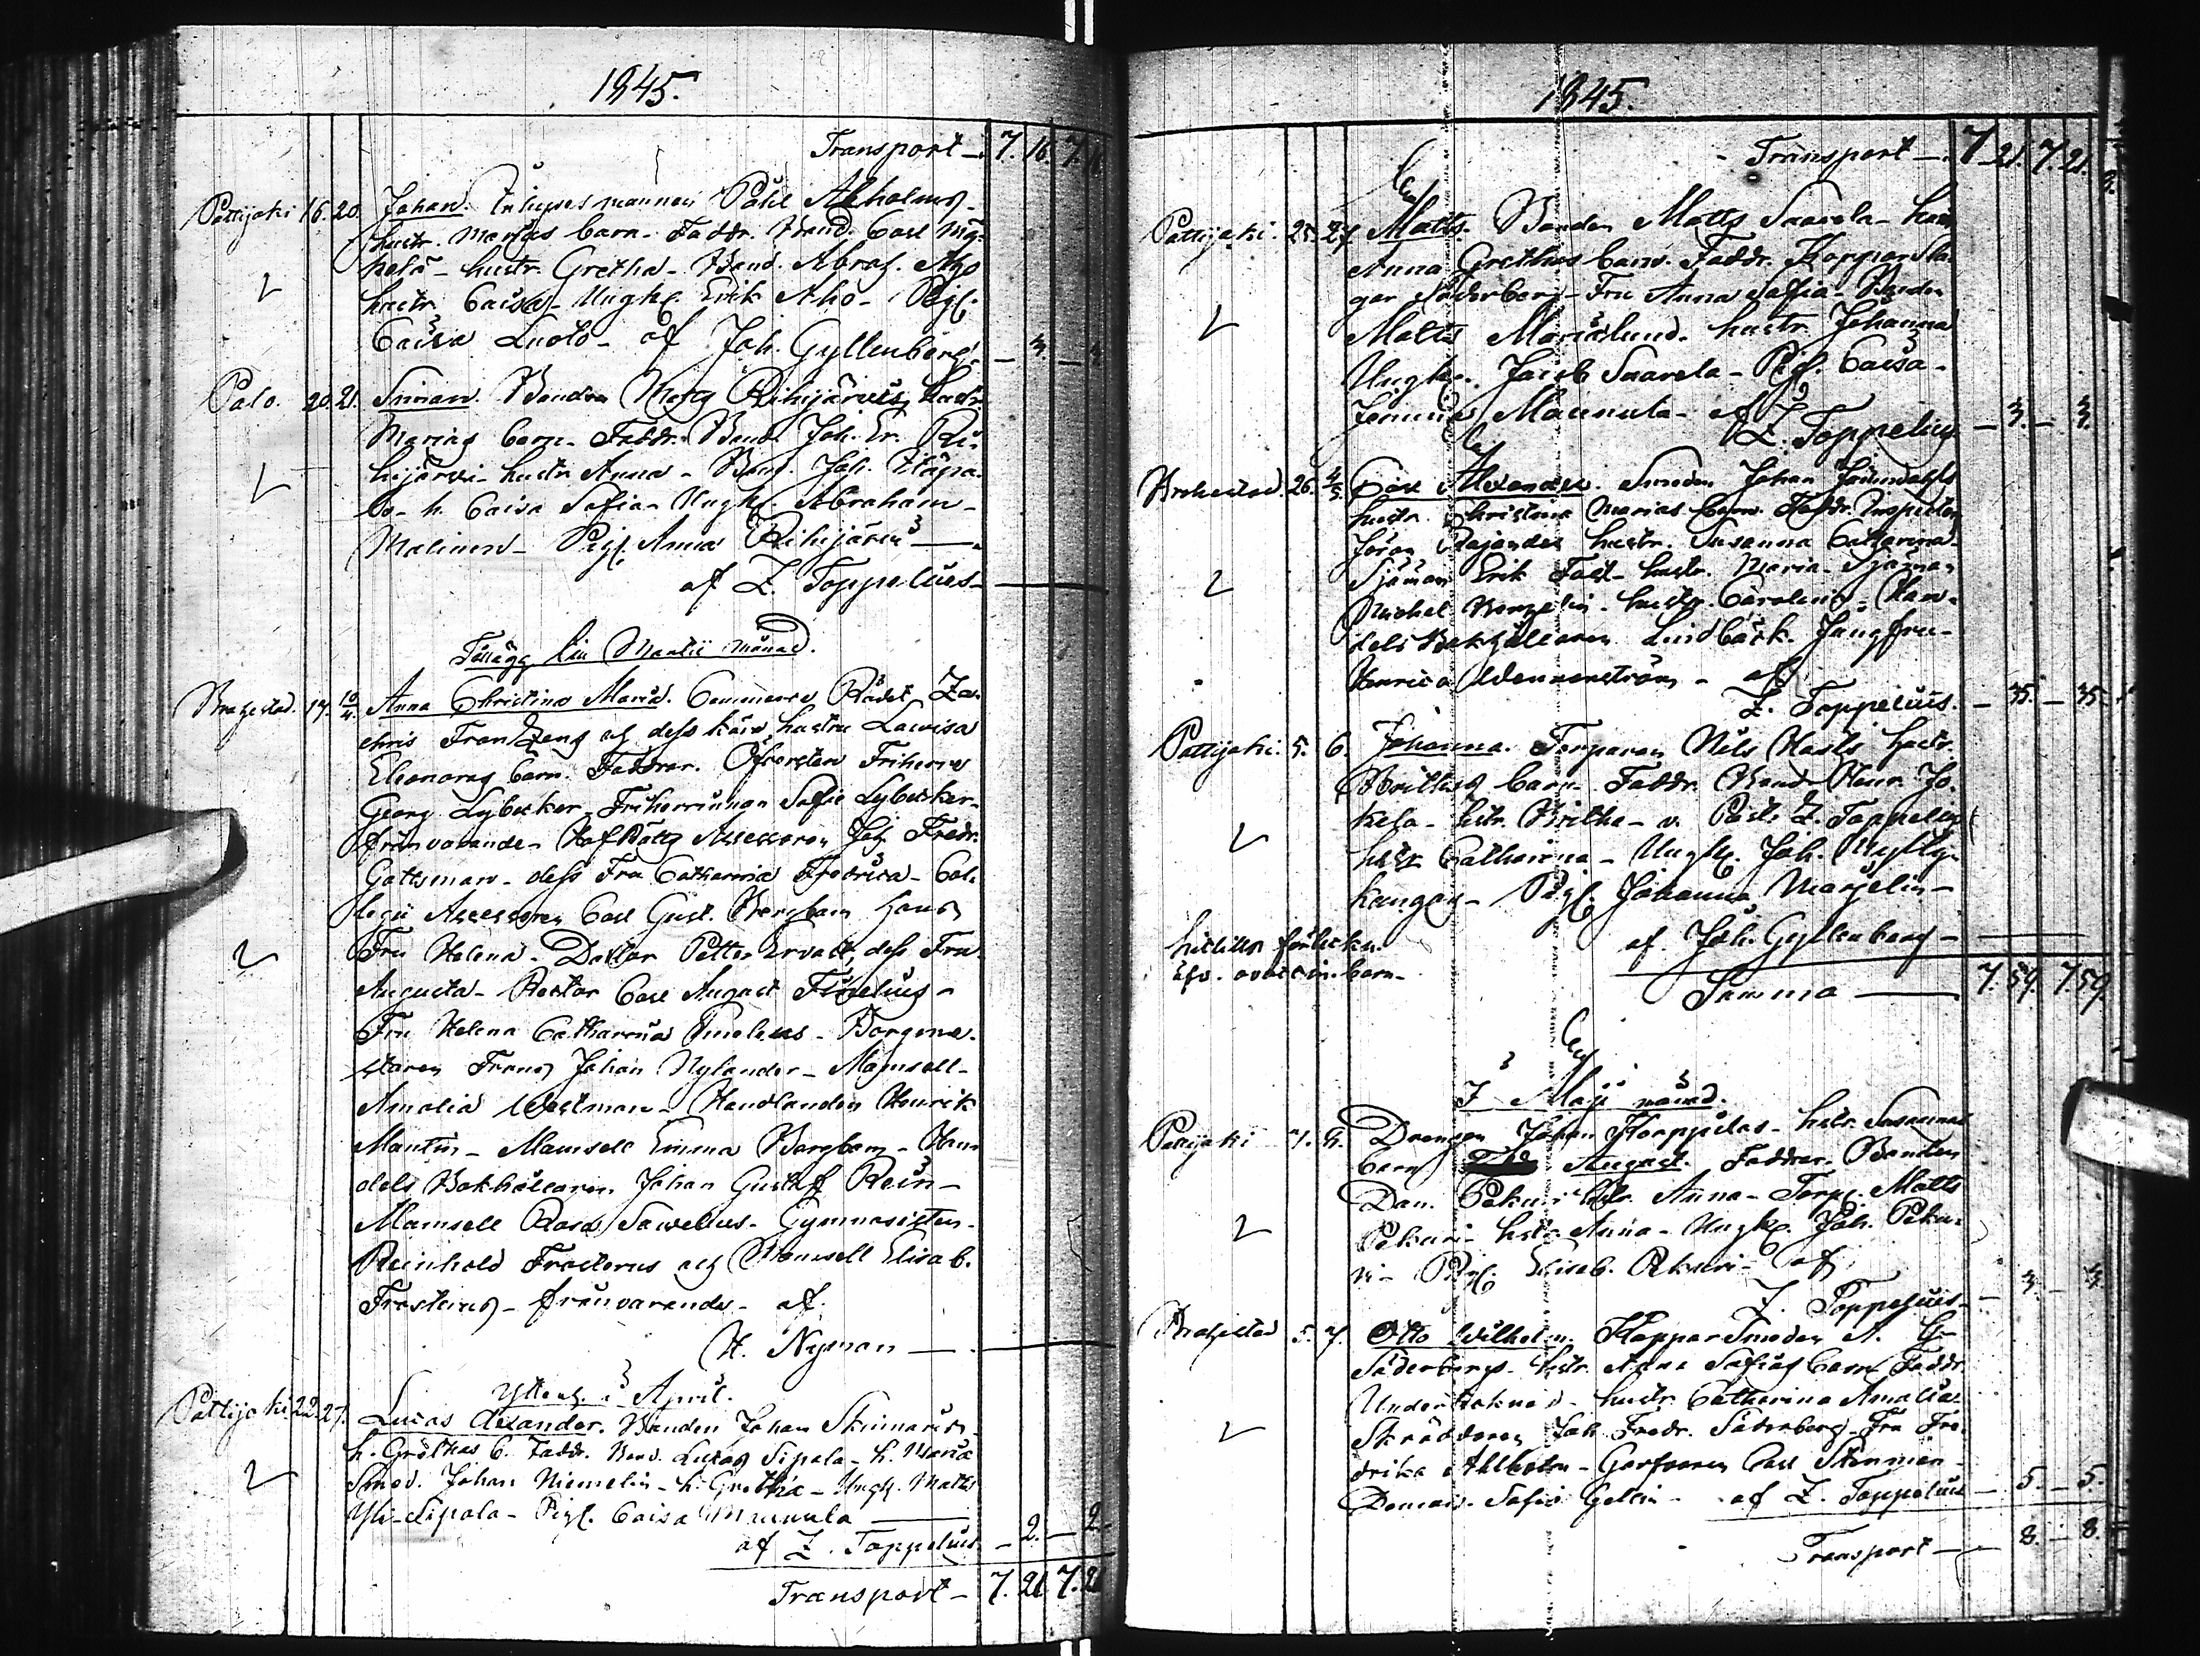 1845.
Transport – 7. 16. 7.
Pattijoki 16. 20. Johan. Inhysesmannen Påhl Ahholms
hustr. Marias barn. Faddr. Bond. Carl
hustr. Gretha – Bond. Abrah. Aho
hustr. Caisa – Ungk. Erik Aho – Pig.
Caisa Luoto – af Joh. Gyllenberg. – 3 –
Palo. 20. 21. Simon. Bonden Matts Rihijärvis hustr.
Marias barn. Faddr. Bond. Joh. Er. Ri-
hijärvi – hustr. Anna – Bond. Joh.
h. Caisa Sofia – Ungk. Abraham
Malinen – Pig. Anna Rihijärvi –
af Z. Toppelius –
Tillägg Martii månad.
Brahestad. 17. 10/4. Anna Christina Maria. Commerce Rådet Za-
chris Franzens och dess kära hustru Lovisa
Eleonoras barn. Faddrar. Öfversten Friherre
Georg Lybecker – Friherrinnan Sofie Lybecker –
frånvarande – HofRätts Assessoren Joh. Fredr.
Gottsman – dess Fru Catharina Fredrica – Col-
legii Assessoren Carl Gust. Bergbom hans
Fru Helena – Doctor Petter Ervast, dess Fru
Augusta – Rector Carl August
Fru Helena Catharina – Borgme-
staren Frans Johan Nylander – Mamsell
Amalia Westman – Handlanden Henrik
Mantin – Mamsell Emma Bergbom – Han-
dels Bokhållaren Johan Gustaf Rein –
Mamsell Rosa Sawelius – Gymnasisten
Reinhold Frosterus och Mamsell Elisab.
Frosterus – frånvarande – af
H. Nyman –
Ytterl. i April.
Pattijoki 22. 27. Lucas Alexander. Bonden Johan
h. Grethas b. Faddr. Bond. Lucas Sipola – h. Maria
Smed. Johan Niemelin – h. Gretha – Ungk. Matts
Yli-Sipola – Pig. Caisa Mannula –
af Z. Toppelius – 2. – 2.
Transport – 7. 21 7. 21
1845.
Transport – 7. 21. 7. 21.
Pattijoki. 25. 27. Matts. Bonden Matts Saarela – hus
Anna Grethas barn. Faddr. Kopparsla-
gar Söderberg – Fru Anna Sofia – Bonden
Matts Marislund. hustr. Johanna
Ungk. Jacob Saarela – Pig. Caisa
Mannula – af
Z. Toppelius – 3. – 3.
Brahestad. 26. 4/5. Carl Alexander. Smeden Johan
hustr. Christina Marias barn. Faddr. Inspector
Jöran Rajander hustr. Susanna Catharina –
Sjöman Erik Fast – hustr. Maria – Sjöman
Michel – hustr. Carolina – Han-
dels Bokhållaren Lindbäck. Jungfru
Henrica Wennerström – af
Z. Toppelius. – 35. – 35.
Pattijoki. 5. 6. Johanna. Torparen Nils hustr.
Brithas barn. Faddr. Bond. Henr. Jo-
kela – hstr. Britha – v. Past. Z. Toppelius
hustr. Catharina – Ungk. Joh.
kangas – Pig. Johanna Marjelin –
af Joh. Gyllenberg –
barn –
Summa – 7. 59. 7. 59.
I Maji månad.
Pattijoki 1. 4. Drengen Johan Koappilas – hstr. Susannas
barn August. Faddrar. Bonden
Dan. Pekuri hstr. Anna – Torp. Matts
Pekuri – hstr. Anna – Ungk. Joh. Peku-
ri – Pig. Elisab. Pekuri – af
Z. Toppelius – 3. – 3.
Brahestad 5. 7. Otto Wilhelm. KopparSmeden A.
Söderbergs – hstr. Anna Sofias barn Faddr.
hustr. Catharina Amalia –
Skräddaren Joh. Fredr. Söderberg – Fru Fre-
drika Ahlholm – Garfvaren Carl Stenman –
Demois. Sofia – af Z. Toppelius – 5. – 5.
Transport – 8. – 8.